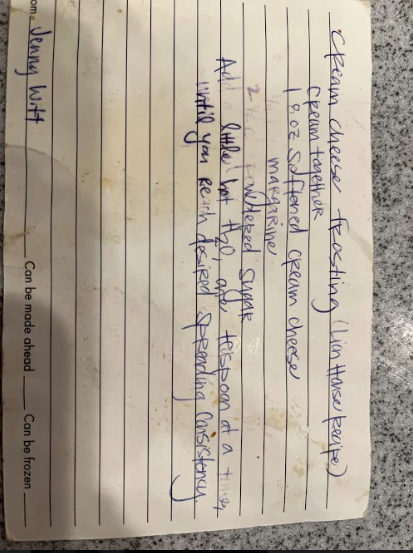 Cream cheese frosting (Lion House Recipe)
Cream together
1 8 oz softened cream cheese
margarine
2 powdered sugar
Add little hot H2O, one teaspoon at a time,
until you reach desired spreading consistency
Jenny Witt Can be made ahead ____ Can be frozen ____